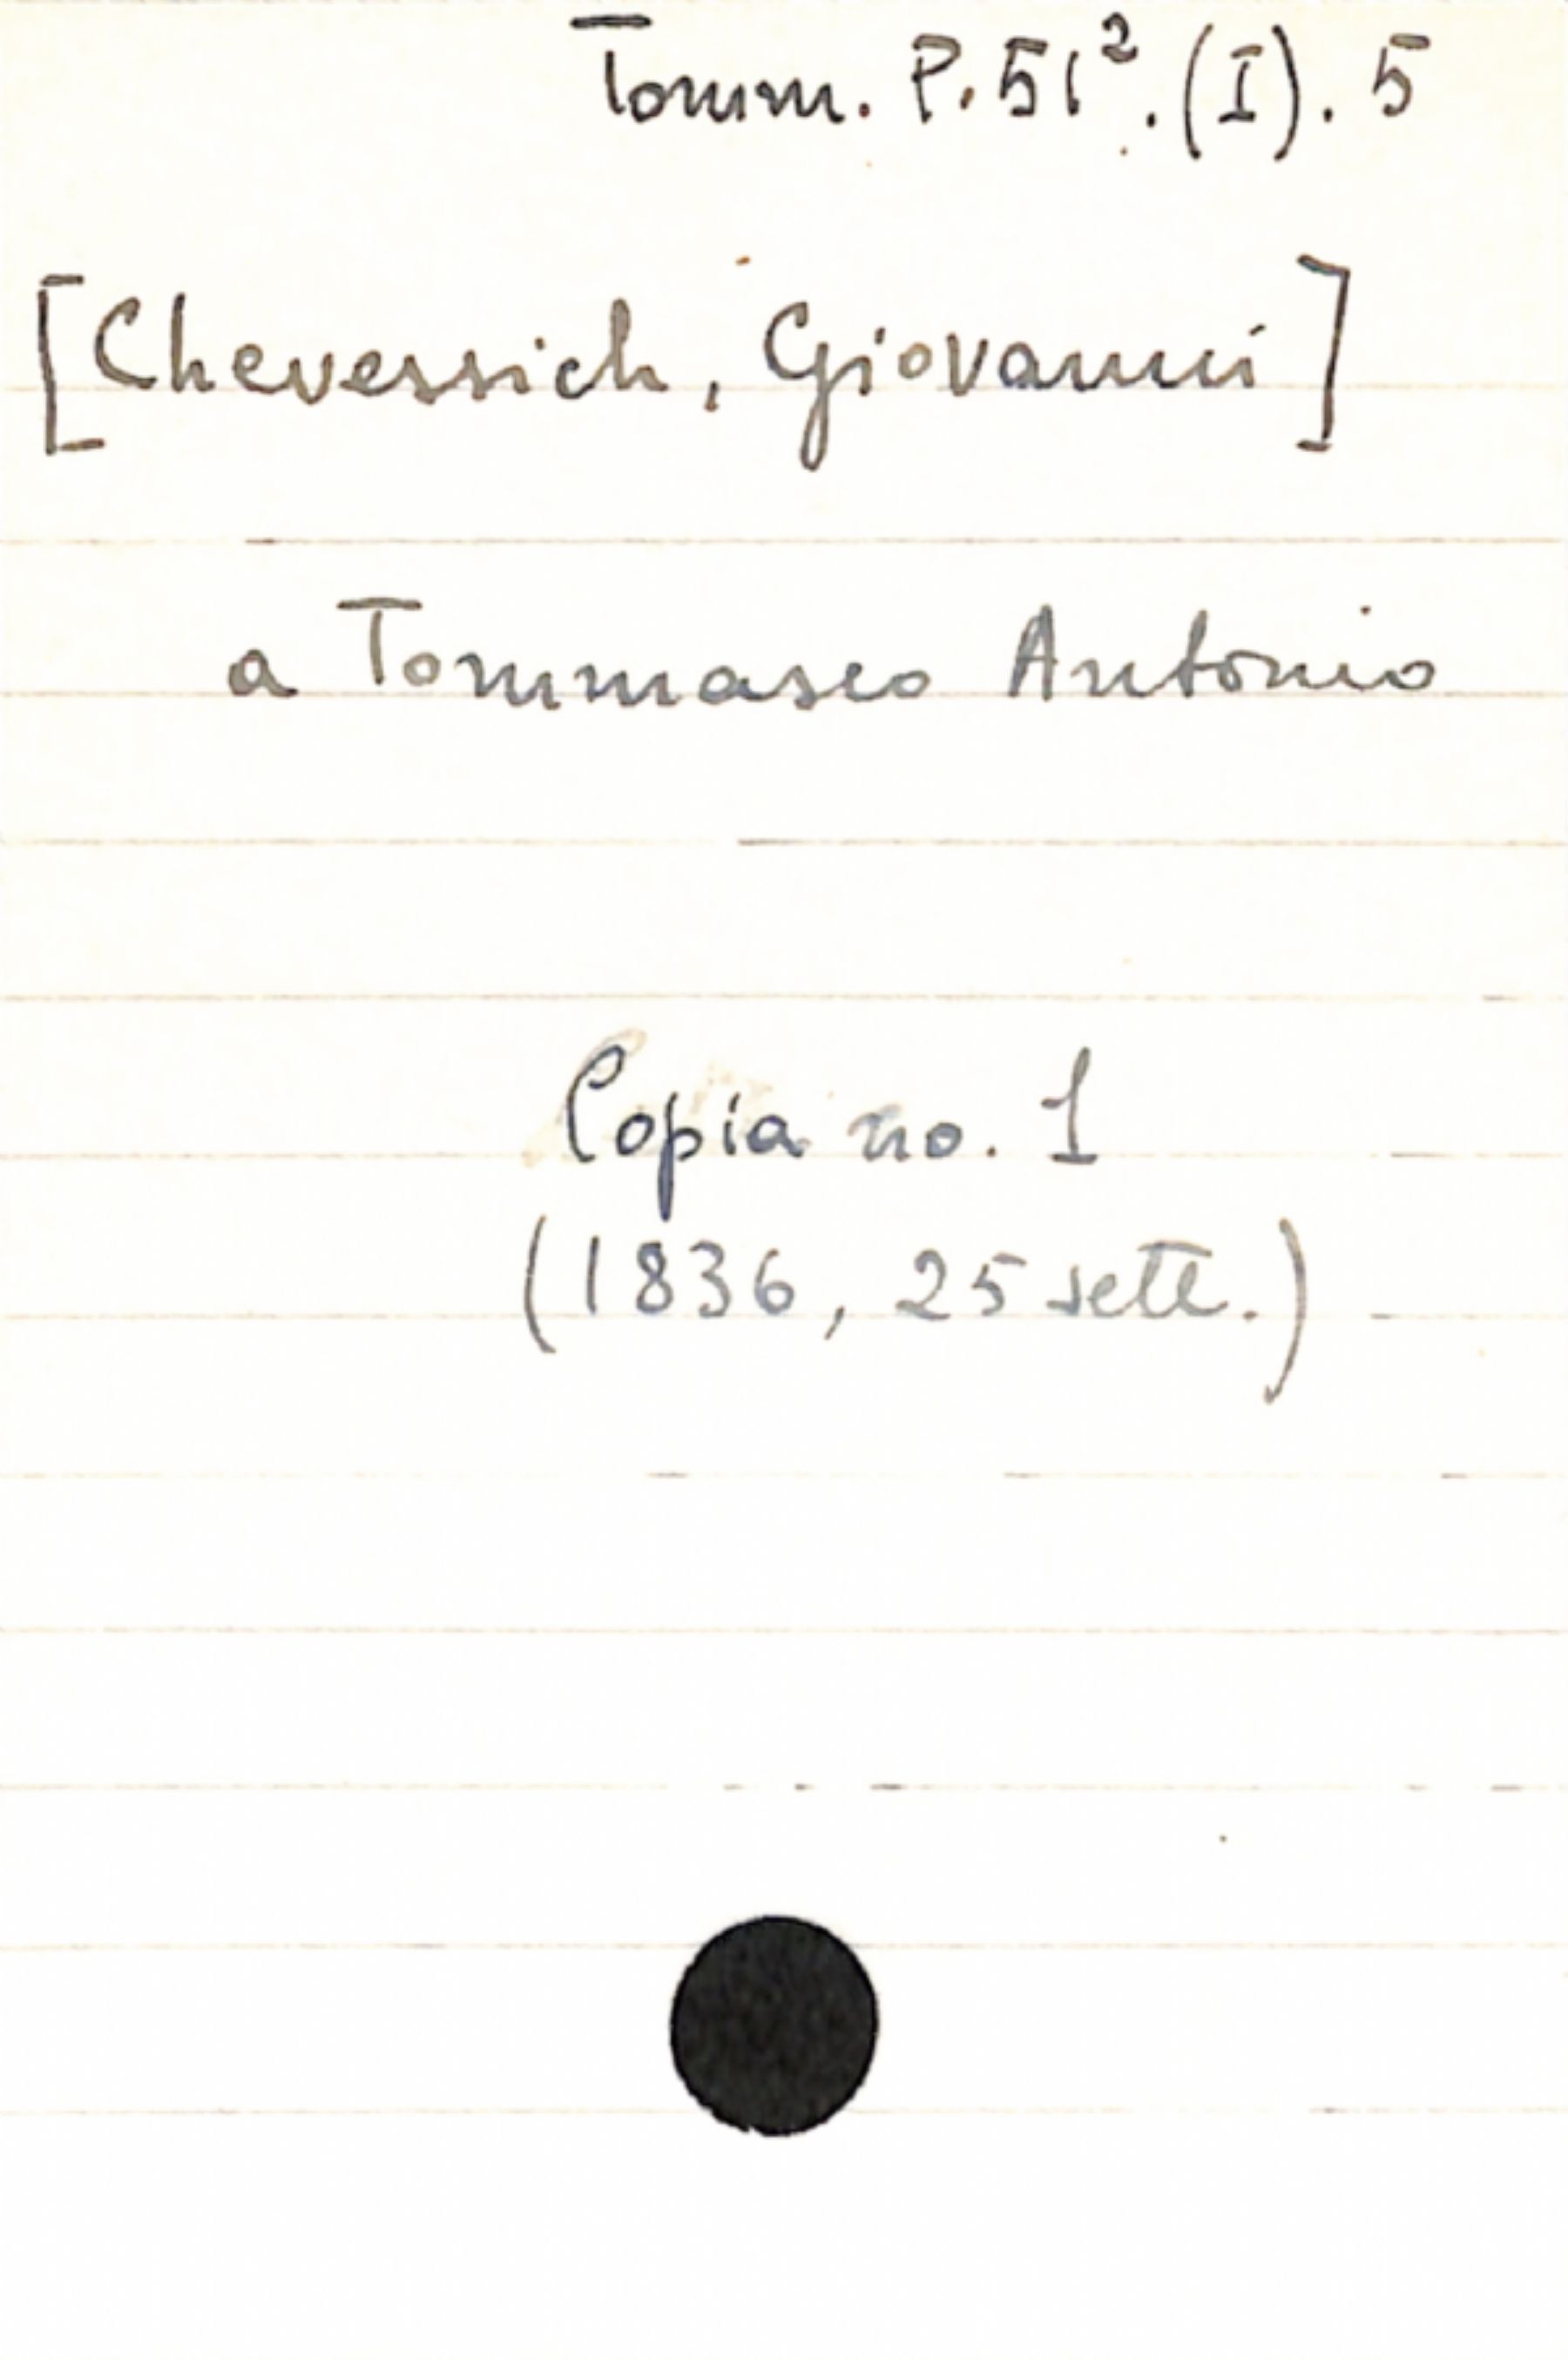 Tomm. P. 51². (I). 5
[Chevessich, Giovanni]
a Tommaseo Antonio
Copia no. 1
(1836, 25 sett.)